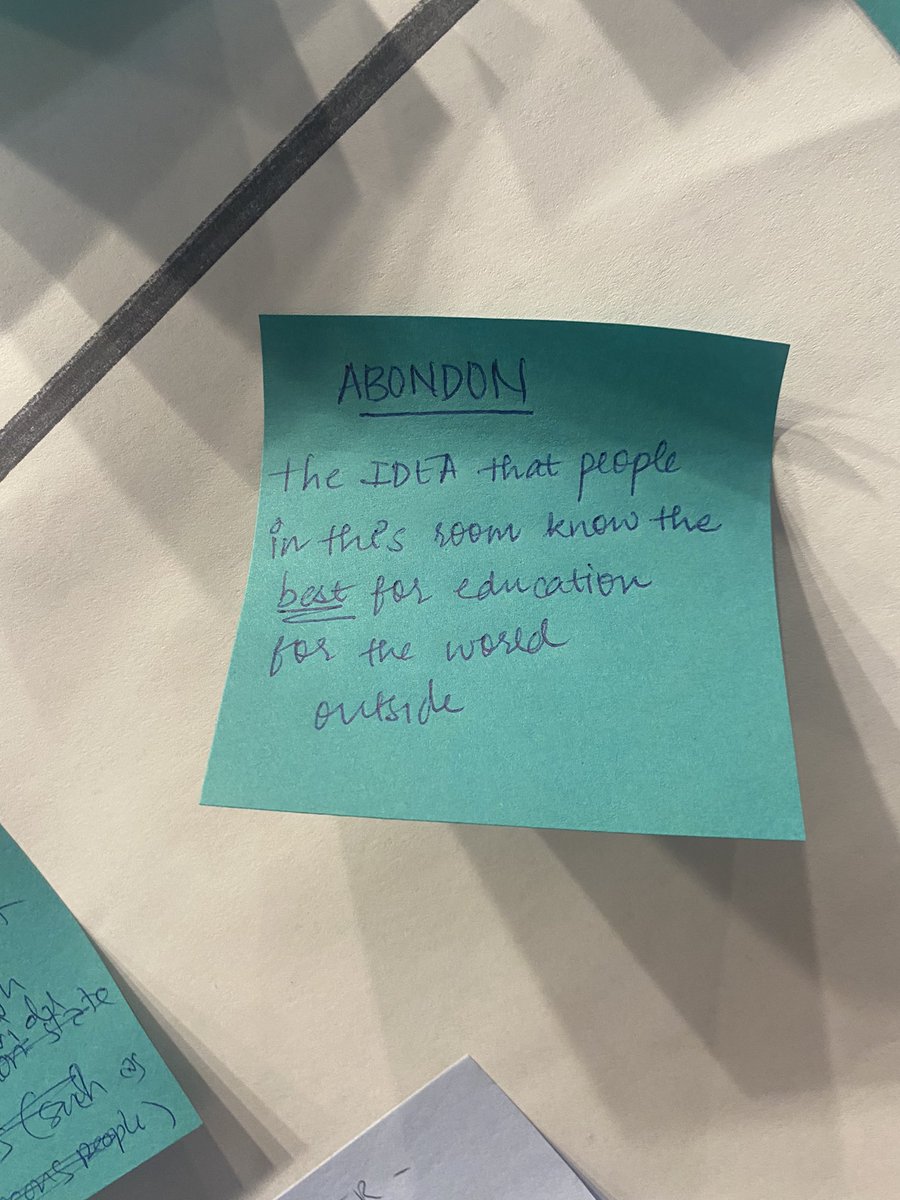 ABONDON
the IDEA that people
in this room know the
best for education
for the world
outside
state
(such as
people)
R -